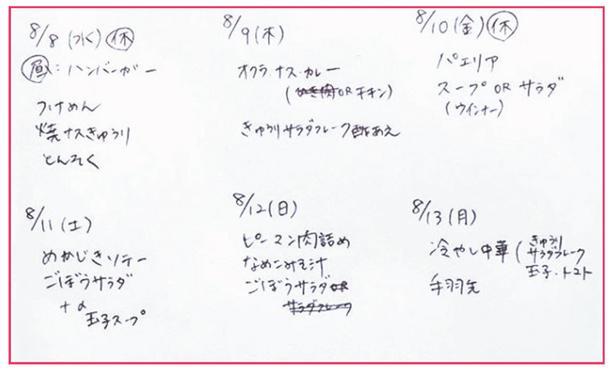 8/8(水)休
昼:ハンバーガー
つけめん
焼ナスきゅうり
とんそく
8/9(木)
オクラナス・カレー
(ひき肉ORチキン)
きゅうりサラダフレーク酢あえ
8/10(金)休
パエリア
スープORサラダ
(ウインナー)
8/11(土)
めかじきソテー
ごぼうサラダ
+α
玉子スープ
8/12(日)
ピーマン肉詰め
なめこみそ汁
ごぼうサラダOR
サラダフレーク
8/13(月)
冷やし中華(きゅうり
サラダフレーク
玉子・トマト
手羽先